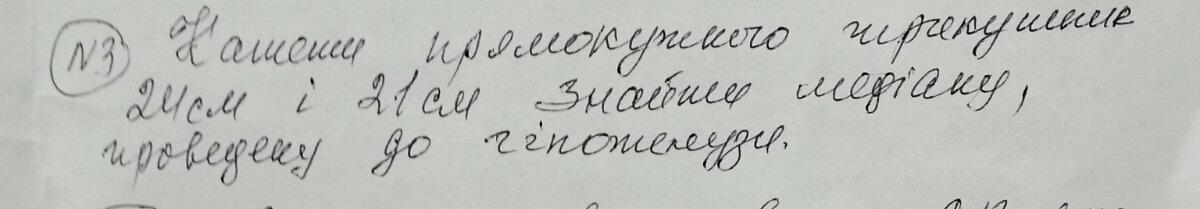 №3 Катети прямокутного трикутник
24см і 21см Знайти медіану,
проведену до гіпотенузи.